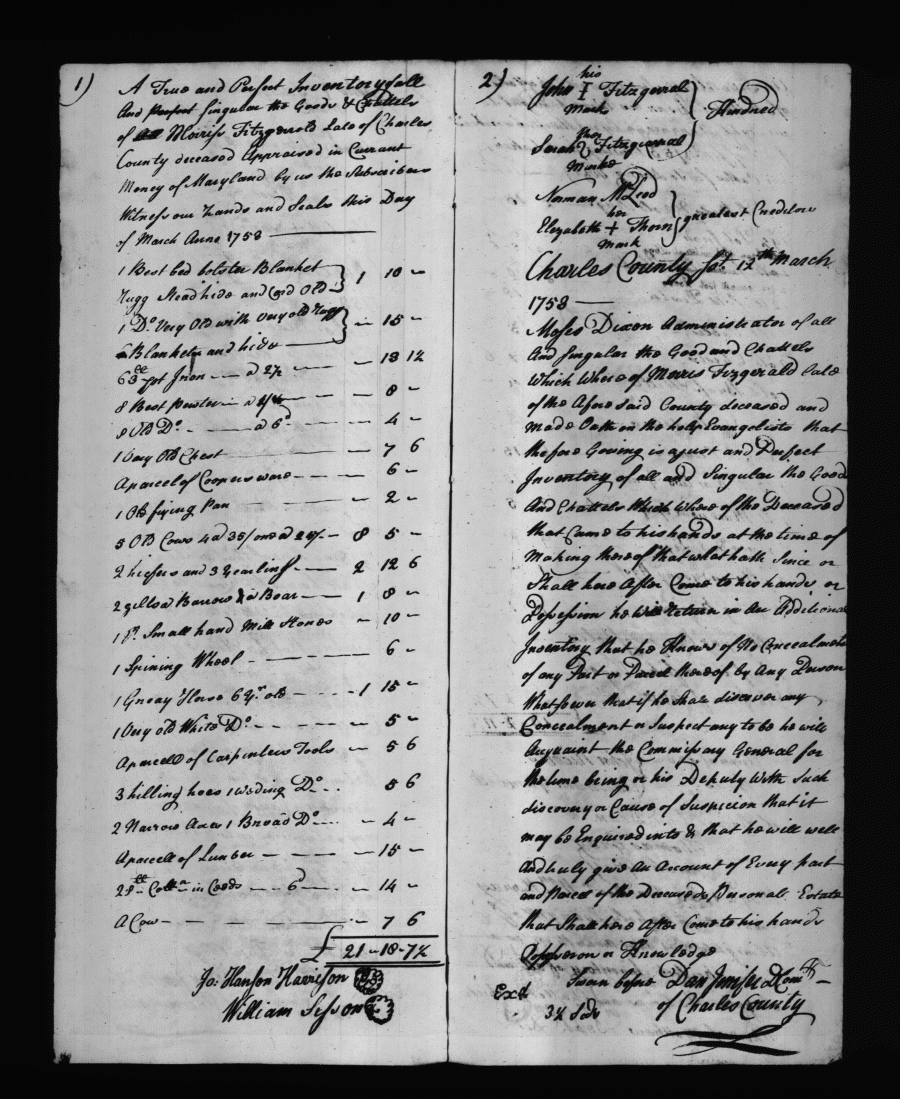 1)
A True and Perfect Inventory of all
And Perfect Singular the Goods & Chattels
of Morriss Fitzgerrald Late of Charles
County deceased Appraised in Currant
Money of Maryland by us the Subscribers
Witness our hands and Seals this Day
of March Anne 1758
1 Best bed bolster Blanket
Rugg Stead hide and Cord Old 1 10 -
1 Do. Very Old with very old Rugg
Blanket and hide - 15 -
63 pot Iron - 13 1½
8 Best Pewter - 8 -
8 Old Do. a 6d - 4 -
1 Very Old Chest - 7 6
A parcel of Coopers ware - 6 -
1 Old frying Pan - 2 -
5 Old Cows 4 a 35/ one a 25/ - 8 5 -
2 hiefers and 3 yearlings - 2 12 6
2 gilts a Barrow & a Boar 1 8 -
1 Pr. Small hand Mill Stones - 10 -
1 Spining Wheel - 6 -
1 Greay Horse 6 Yrs old 1 15 -
1 Very old White Do. - 5 -
A parcell of Carpenters Tools - 5 6
3 hilling hoes 1 weding Do. 5 6
2 Narrow Axes 1 Broad Do. - 4 -
A parcell of Lumber - 15 -
28 ll Cotton in Ceeds 6d - 14 -
A Cow - 7 6
£ 21 - 18 - 7½
Jo: Hanson Harrison
William Sisson
2)
his
John I Fitzgerral
Mark
Kindred
her
Sarah Fitzgerral
Marke
Norman McLeod
her
Elizabeth + Thorn greatest Creditors
mark
Charles County Sst. 12th March
1758
Moses Dixon Administrator of all
And Singular the Good and Chattels
Which Where of Morris Fizgerald Late
of the Afore Said County deceased and
Made Oath on the holy Evangelists that
the fore Going is a just and Perfect
Inventory of all and Singular the Good
And Chattels Which Where of the Deceased
that Came to his hands at the time of
Making there of that what hath Since or
Shall here After Come to his hands or
Possession he will return in An Additional
Inventory that he Knows of No Concealment
of any Part or Parcel thereof by Any Person
Whatsoever that if he Shall discover any
Concealment or Suspect any to be he will
Acquaint the Commissary General for
the time being or his Deputy With Such
discovery or Cause of Suspicion that it
may be Enquired into & that he will well
And truly give An Account of Every part
and Parcel of the Deceaseds Personal Estate
that Shall here After Come to his hands
Possession or Knowledge
Sworn before Dan Jenifer D Com
Exd 3½ Sides of Charles County